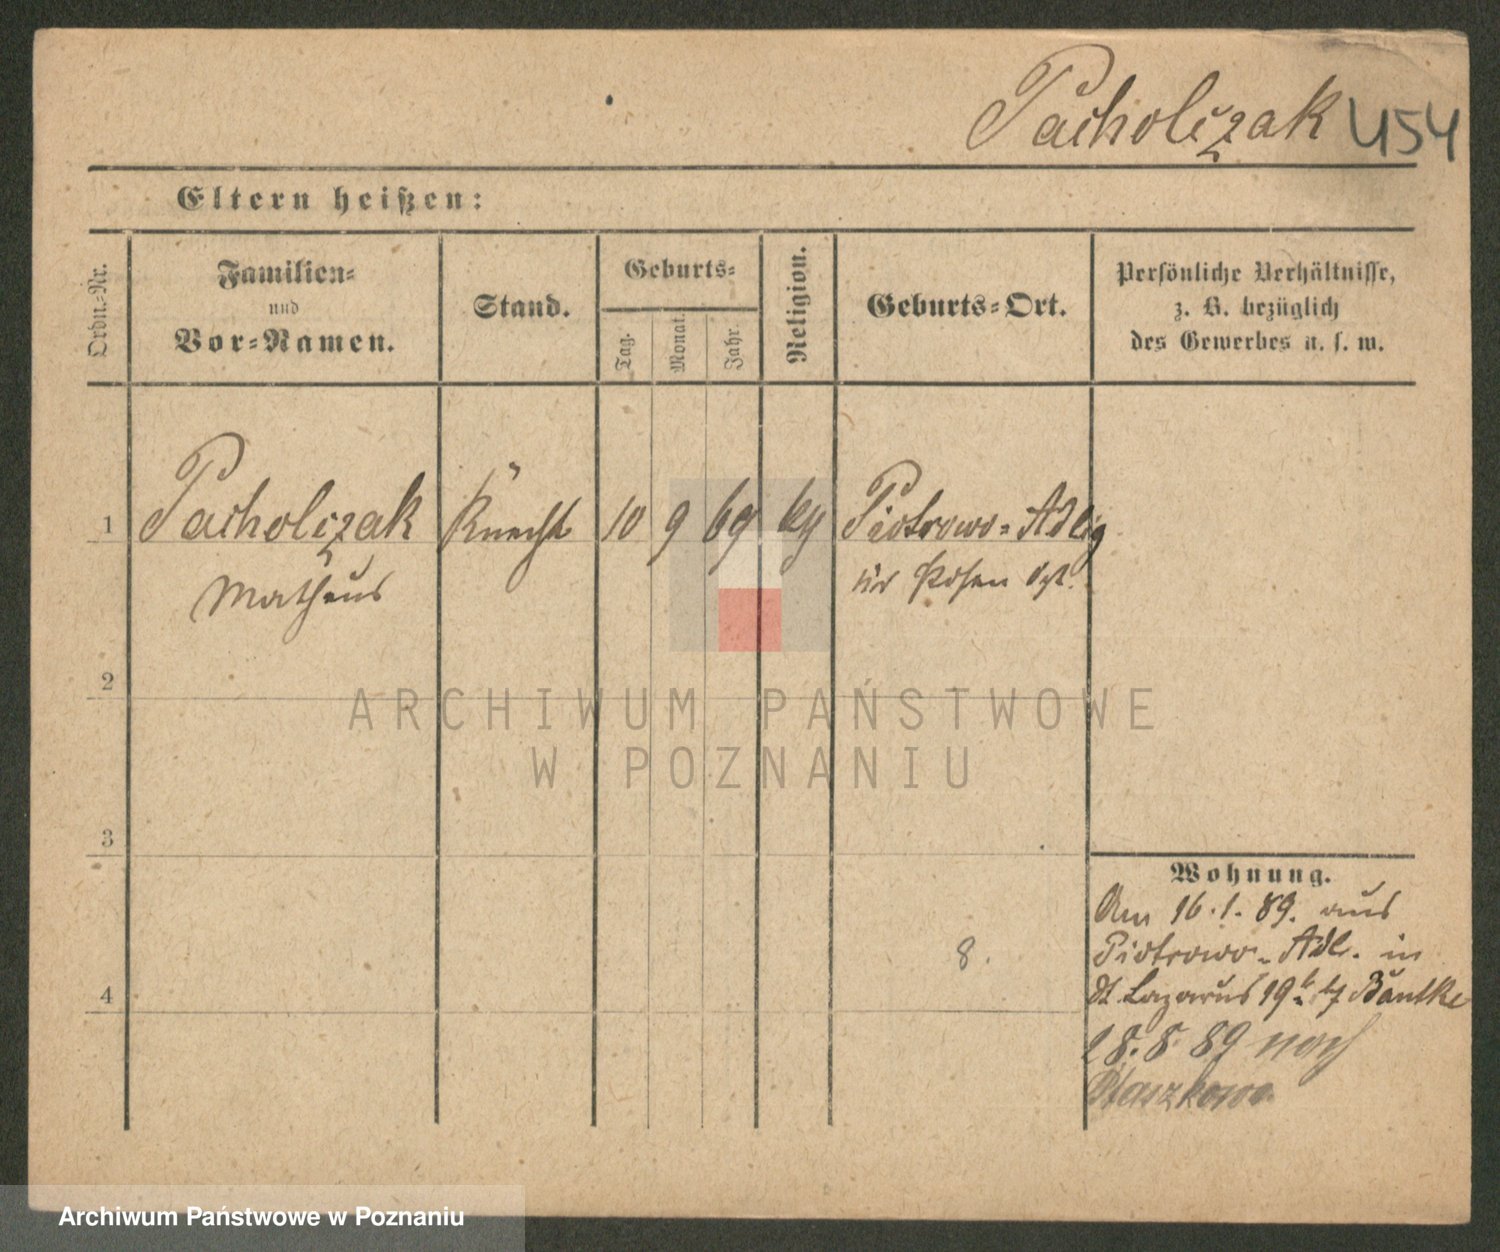 Pacholczak 454
Eltern heißen:
Ordn.-Nr.
Familien-
und
Vor-Namen.
Stand.
Geburts-
Tag.
Monat.
Jahr
Religion.
Geburts-Ort.
Persönliche Verhältnisse,
z. B. bezüglich
des Gewerbes u. s. w.
1 Pacholczak Knecht 10 9 69 Piotrowo-Adlig
Matheus Posen
2
ARCHIWUM PAŃSTWOWE
W POZNANIU
3
Wohnung.
Am 16.1.89. aus
8. Piotrowo-Adl. in
4 St Lazarus 19 Bäntke
28.8 89 nach
Archiwum Państwowe w Poznaniu